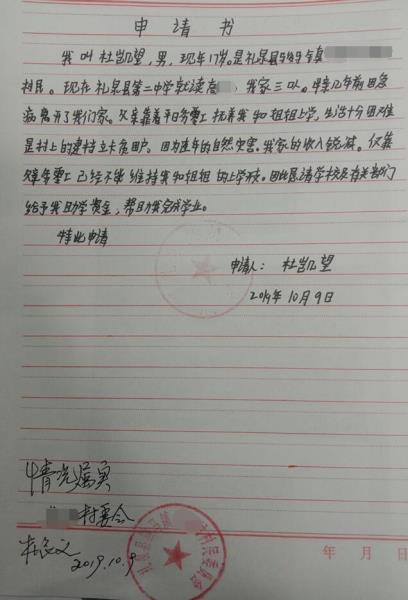 申请书
我叫杜凯望，男，现年17岁，是礼泉县
村民。现在礼泉县第二中学就读高 我家三口人。母亲几年前因急
病离开了我们家。父亲靠着平日务零工抚养我和姐姐上学，生活十分困难
是村上的建档立卡贫困户。因为连年的自然灾害，我家的收入锐减。仅靠
父亲务零工已经不能维持我和姐姐的上学。因此恳请学校及有关部门
给予我助学资金，帮助我完成学业。
特此申请
申请人：杜凯望
2019年10月9日
情况属实
村委会
2019.10.9
年 月 日